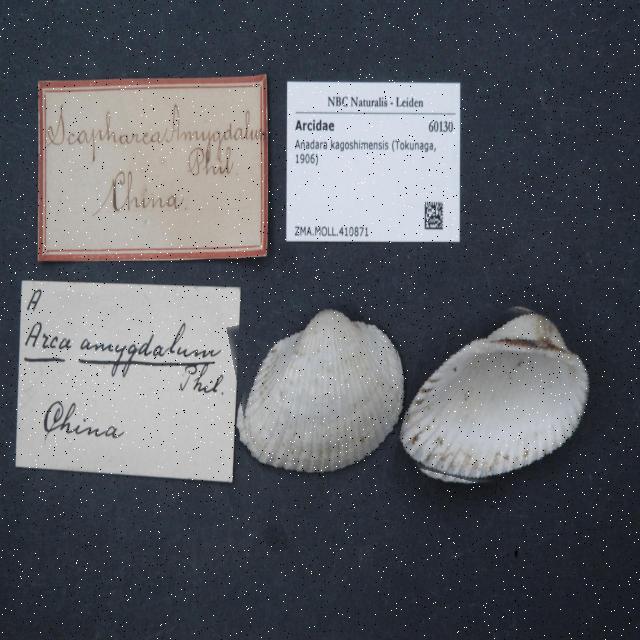 Scapharca Amygdalum
Phil.
China
NBC Naturalis - Leiden
Arcidae 60130
Anadara kagoshimensis (Tokunaga,
1906)
ZMA.MOLL.410871
A
Arca amygdalum
Phil.
China